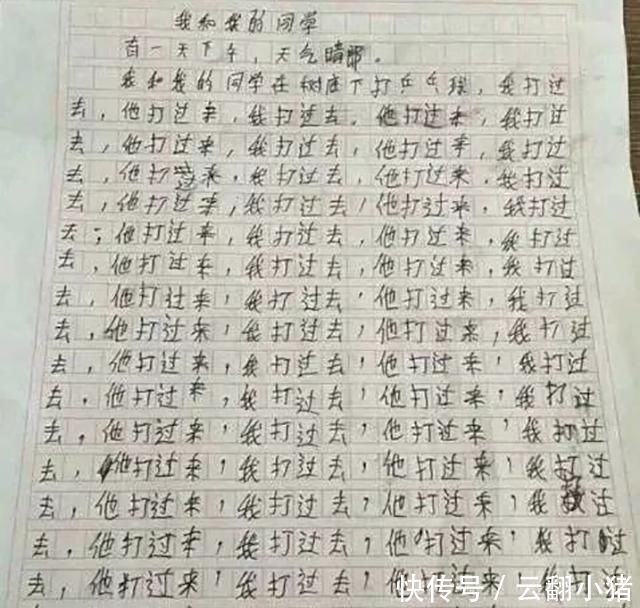 我和我的同学
有一天下午，天气晴朗。
我和我的同学在树底下打乒乓球，我打过
去，他打过来，我打过去，他打过来，我打过
去，他打过来，我打过去，他打过来，我打过
去，他打过来，我打过去，他打过来，我打过
去，他打过来，我打过去，他打过来，我打过
去，他打过来，我打过去，他打过来，我打过
去，他打过来，我打过去，他打过来，我打过
去，他打过来，我打过去，他打过来，我打过
去，他打过来，我打过去，他打过来，我打过
去，他打过来，我打过去，他打过来，我打过
去，他打过来，我打过去，他打过来，我打过
去，他打过来，我打过去，他打过来，我打过
去，他打过来，我打过去，他打过来，我打过
去，他打过来，我打过去，他打过来，我过
去，他打过来，我打过去，他打过来，我打过
去，他打过来，我打过去，他打过来，我打过
快传号／云翻小猪